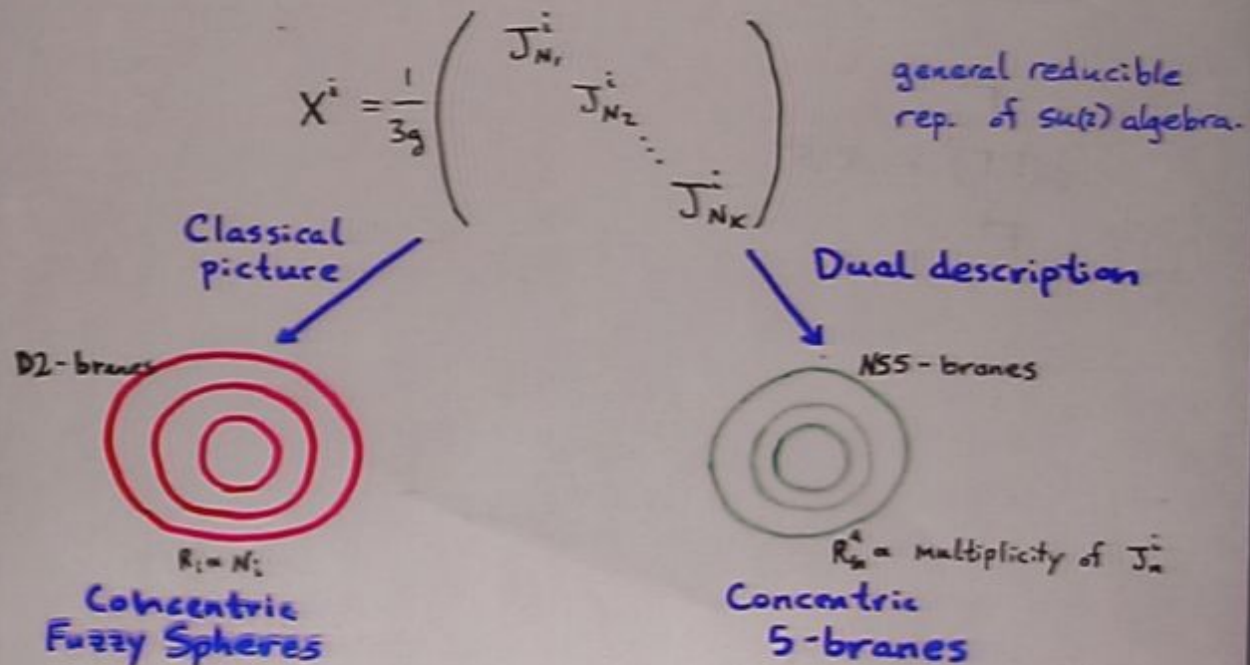 X^i = 1/3g ( J^i_{N_1} J^i_{N_2} ⋱ J^i_{N_K} )
general reducible
rep. of su(2) algebra.
Classical
picture
Dual description
D2-branes
NS5-branes
R_i ∝ N_i
∝ multiplicity of J^i_n
Concentric
Fuzzy Spheres
Concentric
5-branes